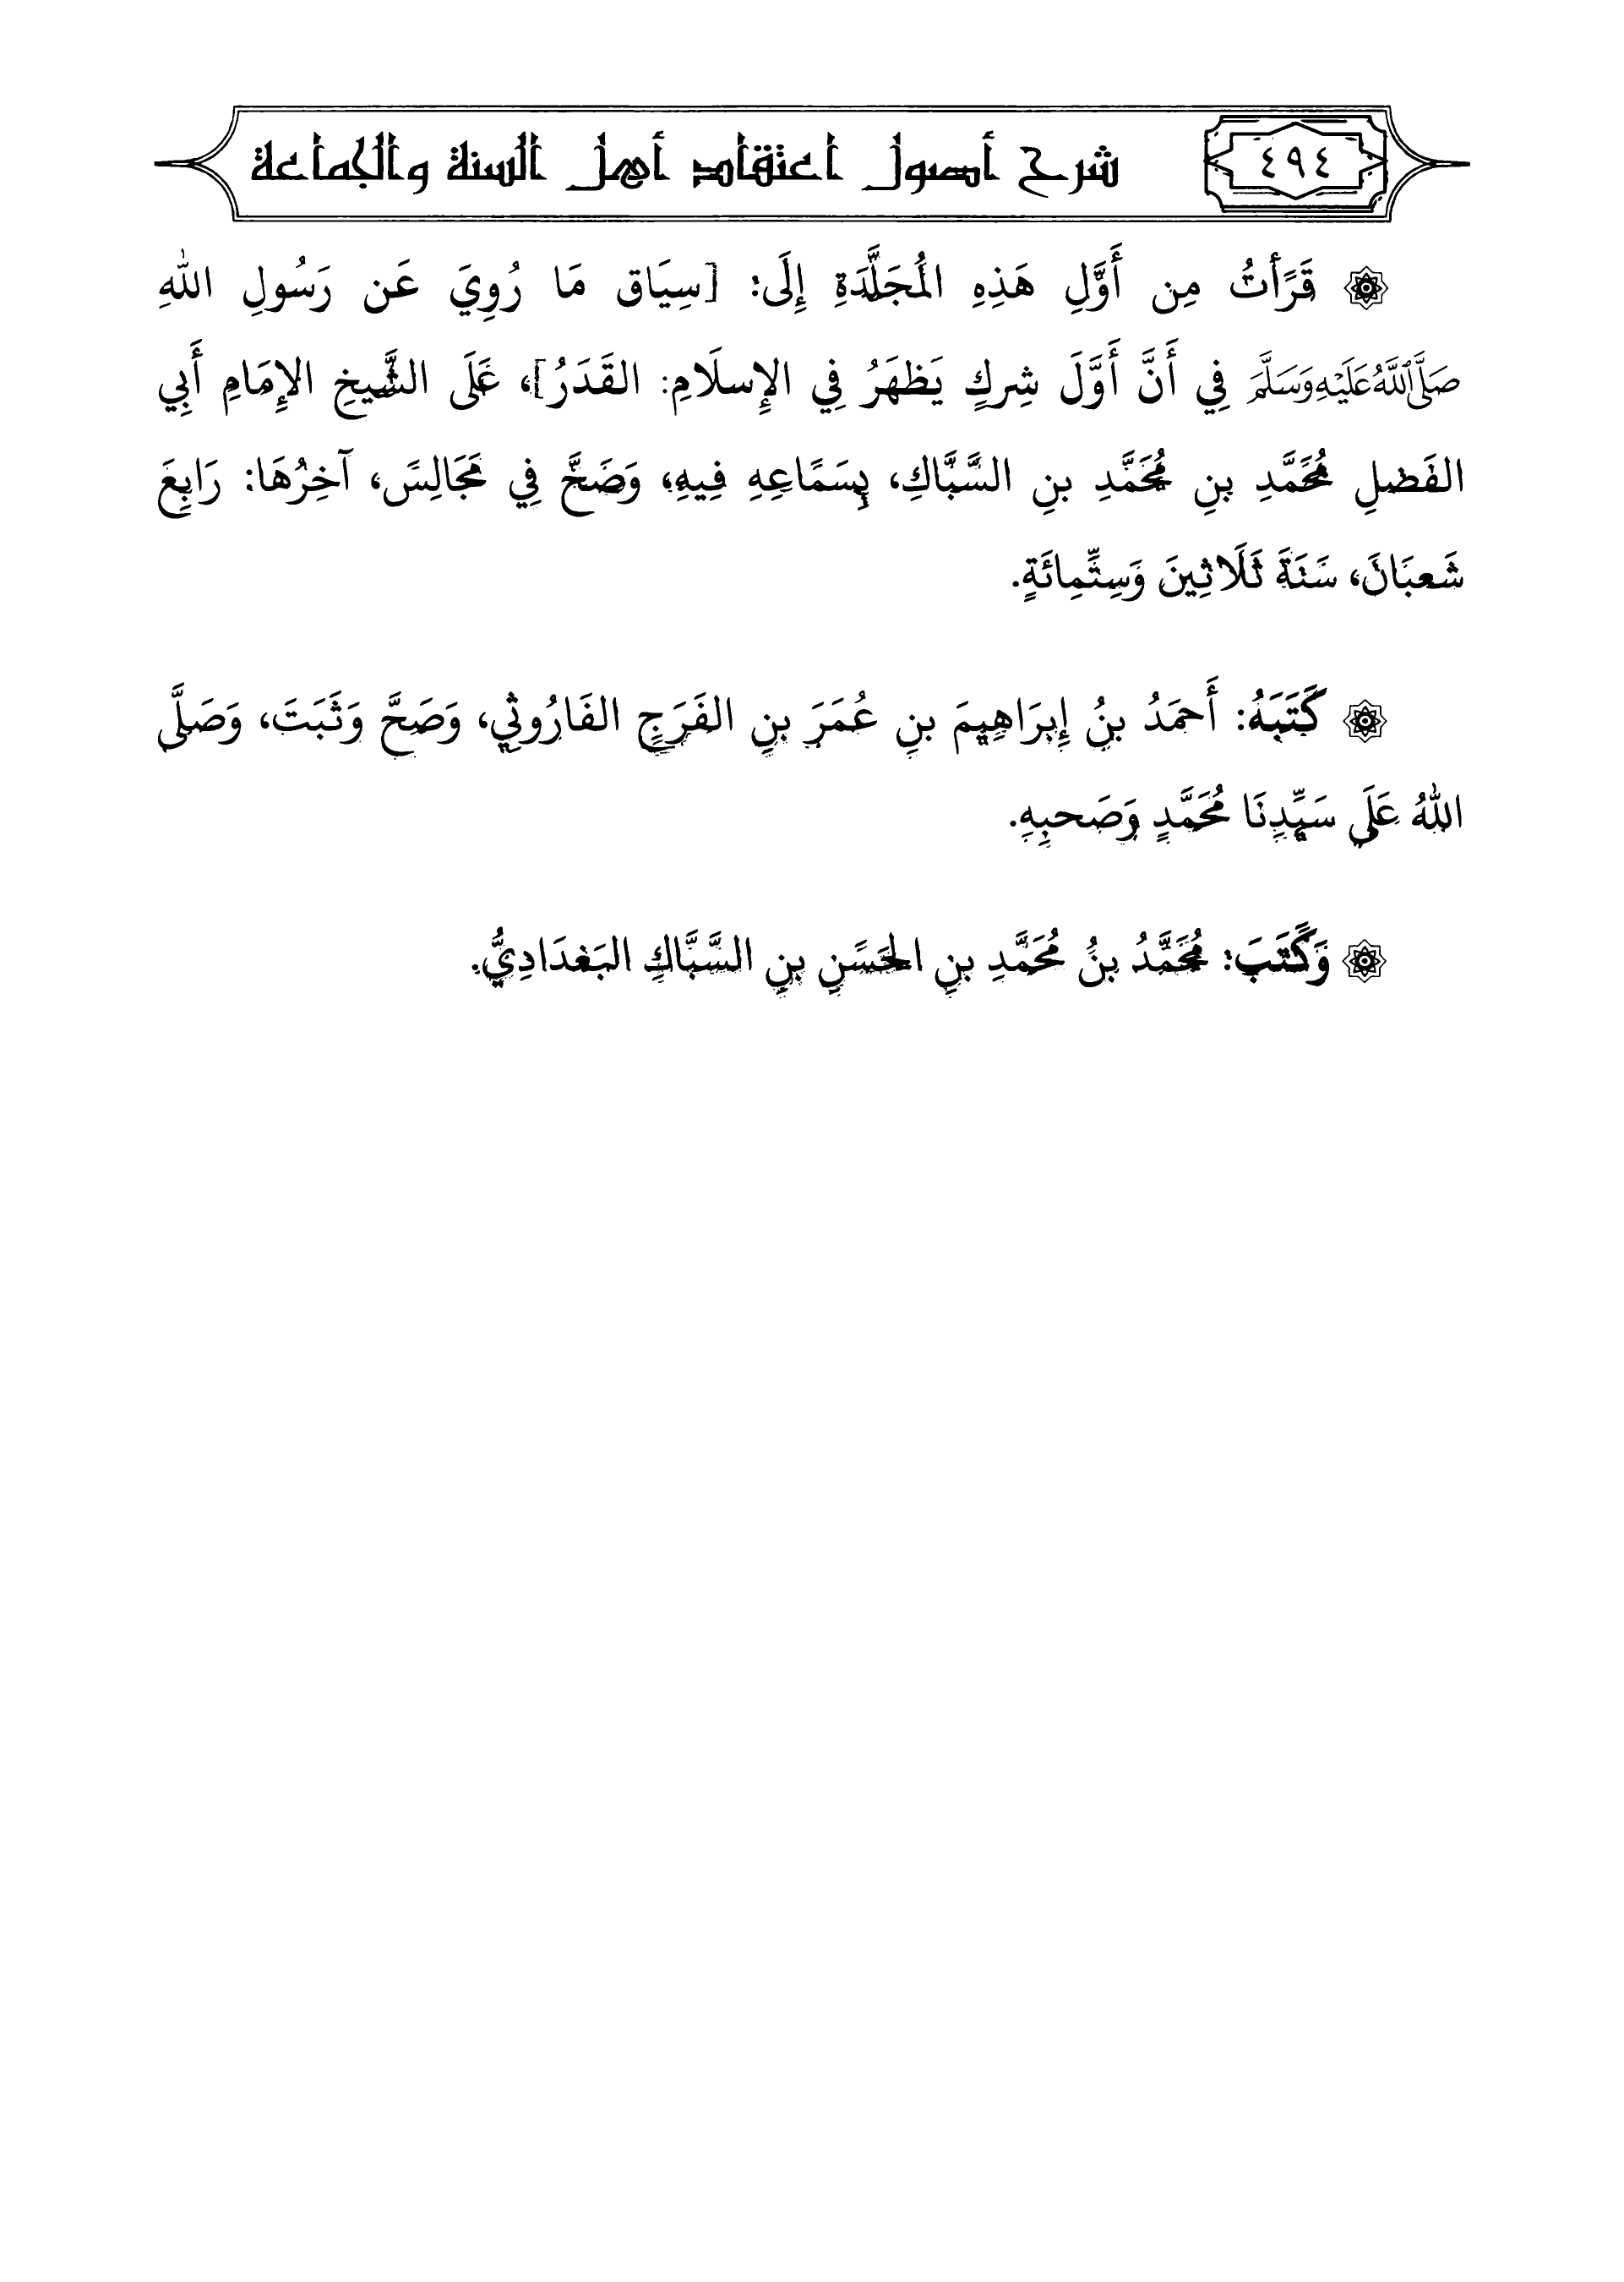 ٤٩٤ شرح أصول اعتقاد أهل السنة والجماعة
۞ قَرَأتُ مِن أَوَّلِ هَذِهِ المُجَلَّدَةِ إِلَى: [سِيَاق مَا رُوِيَ عَن رَسُولِ اللهِ
صَلَّى اللَّهُ عَلَيْهِ وَسَلَّمَ فِي أَنَّ أَوَّلَ شِركٍ يَظهَرُ فِي الإِسلَامِ: القَدَرُ]، عَلَى الشَّيخِ الإِمَامِ أَبِي
الفَضلِ مُحَمَّدِ بنِ مُحَمَّدِ بنِ السَّبَّاكِ، بِسَمَاعِهِ فِيهِ، وَصَحَّ فِي مَجَالِسَ، آخِرُهَا: رَابِعَ
شَعبَانَ، سَنَةَ ثَلَاثِينَ وَسِتِّمِائَةٍ.
۞ كَتَبَهُ: أَحمَدُ بنُ إِبرَاهِيمَ بنِ عُمَرَ بنِ الفَرَجِ الفَارُوثِي، وَصَحَّ وَثَبَتَ، وَصَلَّى
اللهُ عَلَى سَيِّدِنَا مُحَمَّدٍ وَصَحبِهِ.
۞ وَكَتَبَ: مُحَمَّدُ بنُ مُحَمَّدِ بنِ الحَسَنِ بنِ السَّبَّاكِ البَغدَادِيُّ.